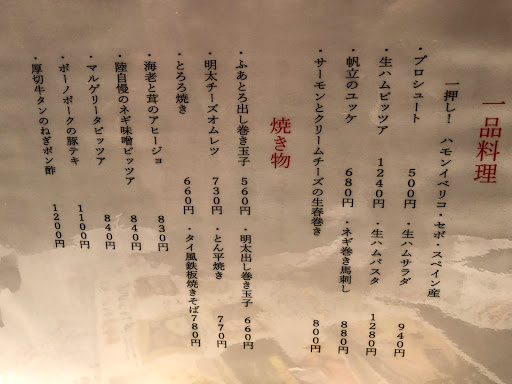 一品料理
一押し! ハモンイベリコ・セボ・スペイン産
・プロシュート 500円 ・生ハムサラダ 940円
・生ハムピッツア 1240円 ・生ハムパスタ 1280円
・帆立のユッケ 680円 ・ネギ巻き馬刺し 880円
・サーモンとクリームチーズの生春巻き 800円
焼き物
・ふあとろ出し巻き玉子 560円 ・明太出し巻き玉子 660円
・明太チーズオムレツ 730円 ・とん平焼き 770円
・とろろ焼き 660円 ・タイ風鉄板焼きそば780円
・海老と茸のアヒージョ 830円
・陸自慢のネギ味噌ピッツア 840円
・マルゲリータピッツア 840円
・ボーノポークの豚テキ 1100円
・厚切牛タンのねぎポン酢 1200円